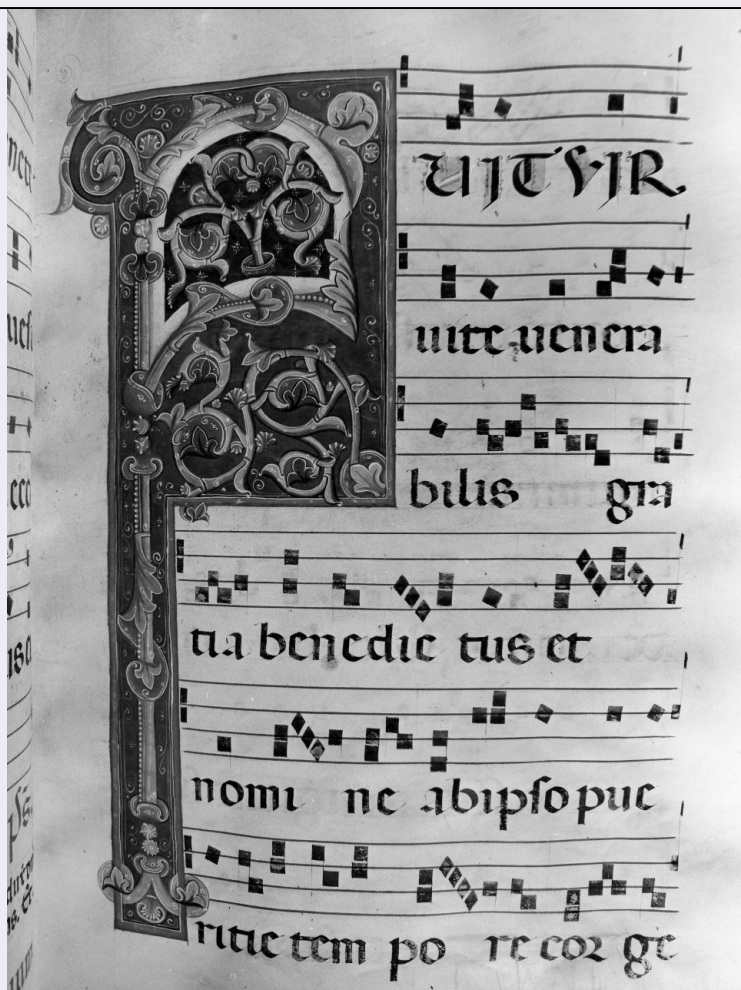 FUIT VIR
uite uenera
bilis gra
tia benedic tus et
nomi ne ab ipso pue
ritie tem po re cor ge